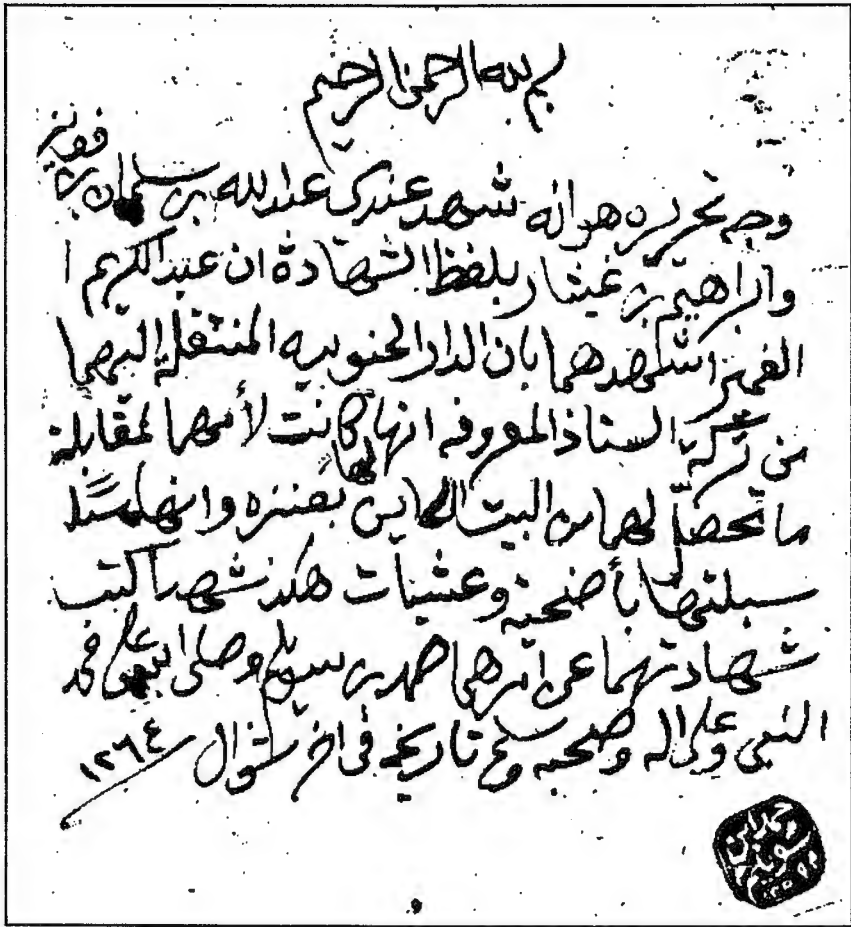 بسم الله الرحمن الرحيم
وجه تحريره هو انه شهد عندي عبد الله بن سلمان بن فوز
وابراهيم بن غيثار بلفظ الشهادة ان عبد الكريم ا
اشهدهما بان الدار الجنوبيه المنتقلة اليهما
من تركة الستاذ المعروفه انها كانت لأمهما لمقابلة
ما لهما من البيت لها بعنزه وانها
سبلتها بأضحية وعشيات هكذ شهدا كتب
شهادتهما عن امرهما حمد بن سويلم وصلى الله على محمد
النبي وعلى اله وصحبه وسلم تاريخه في اخر شوال ١٢٦٤